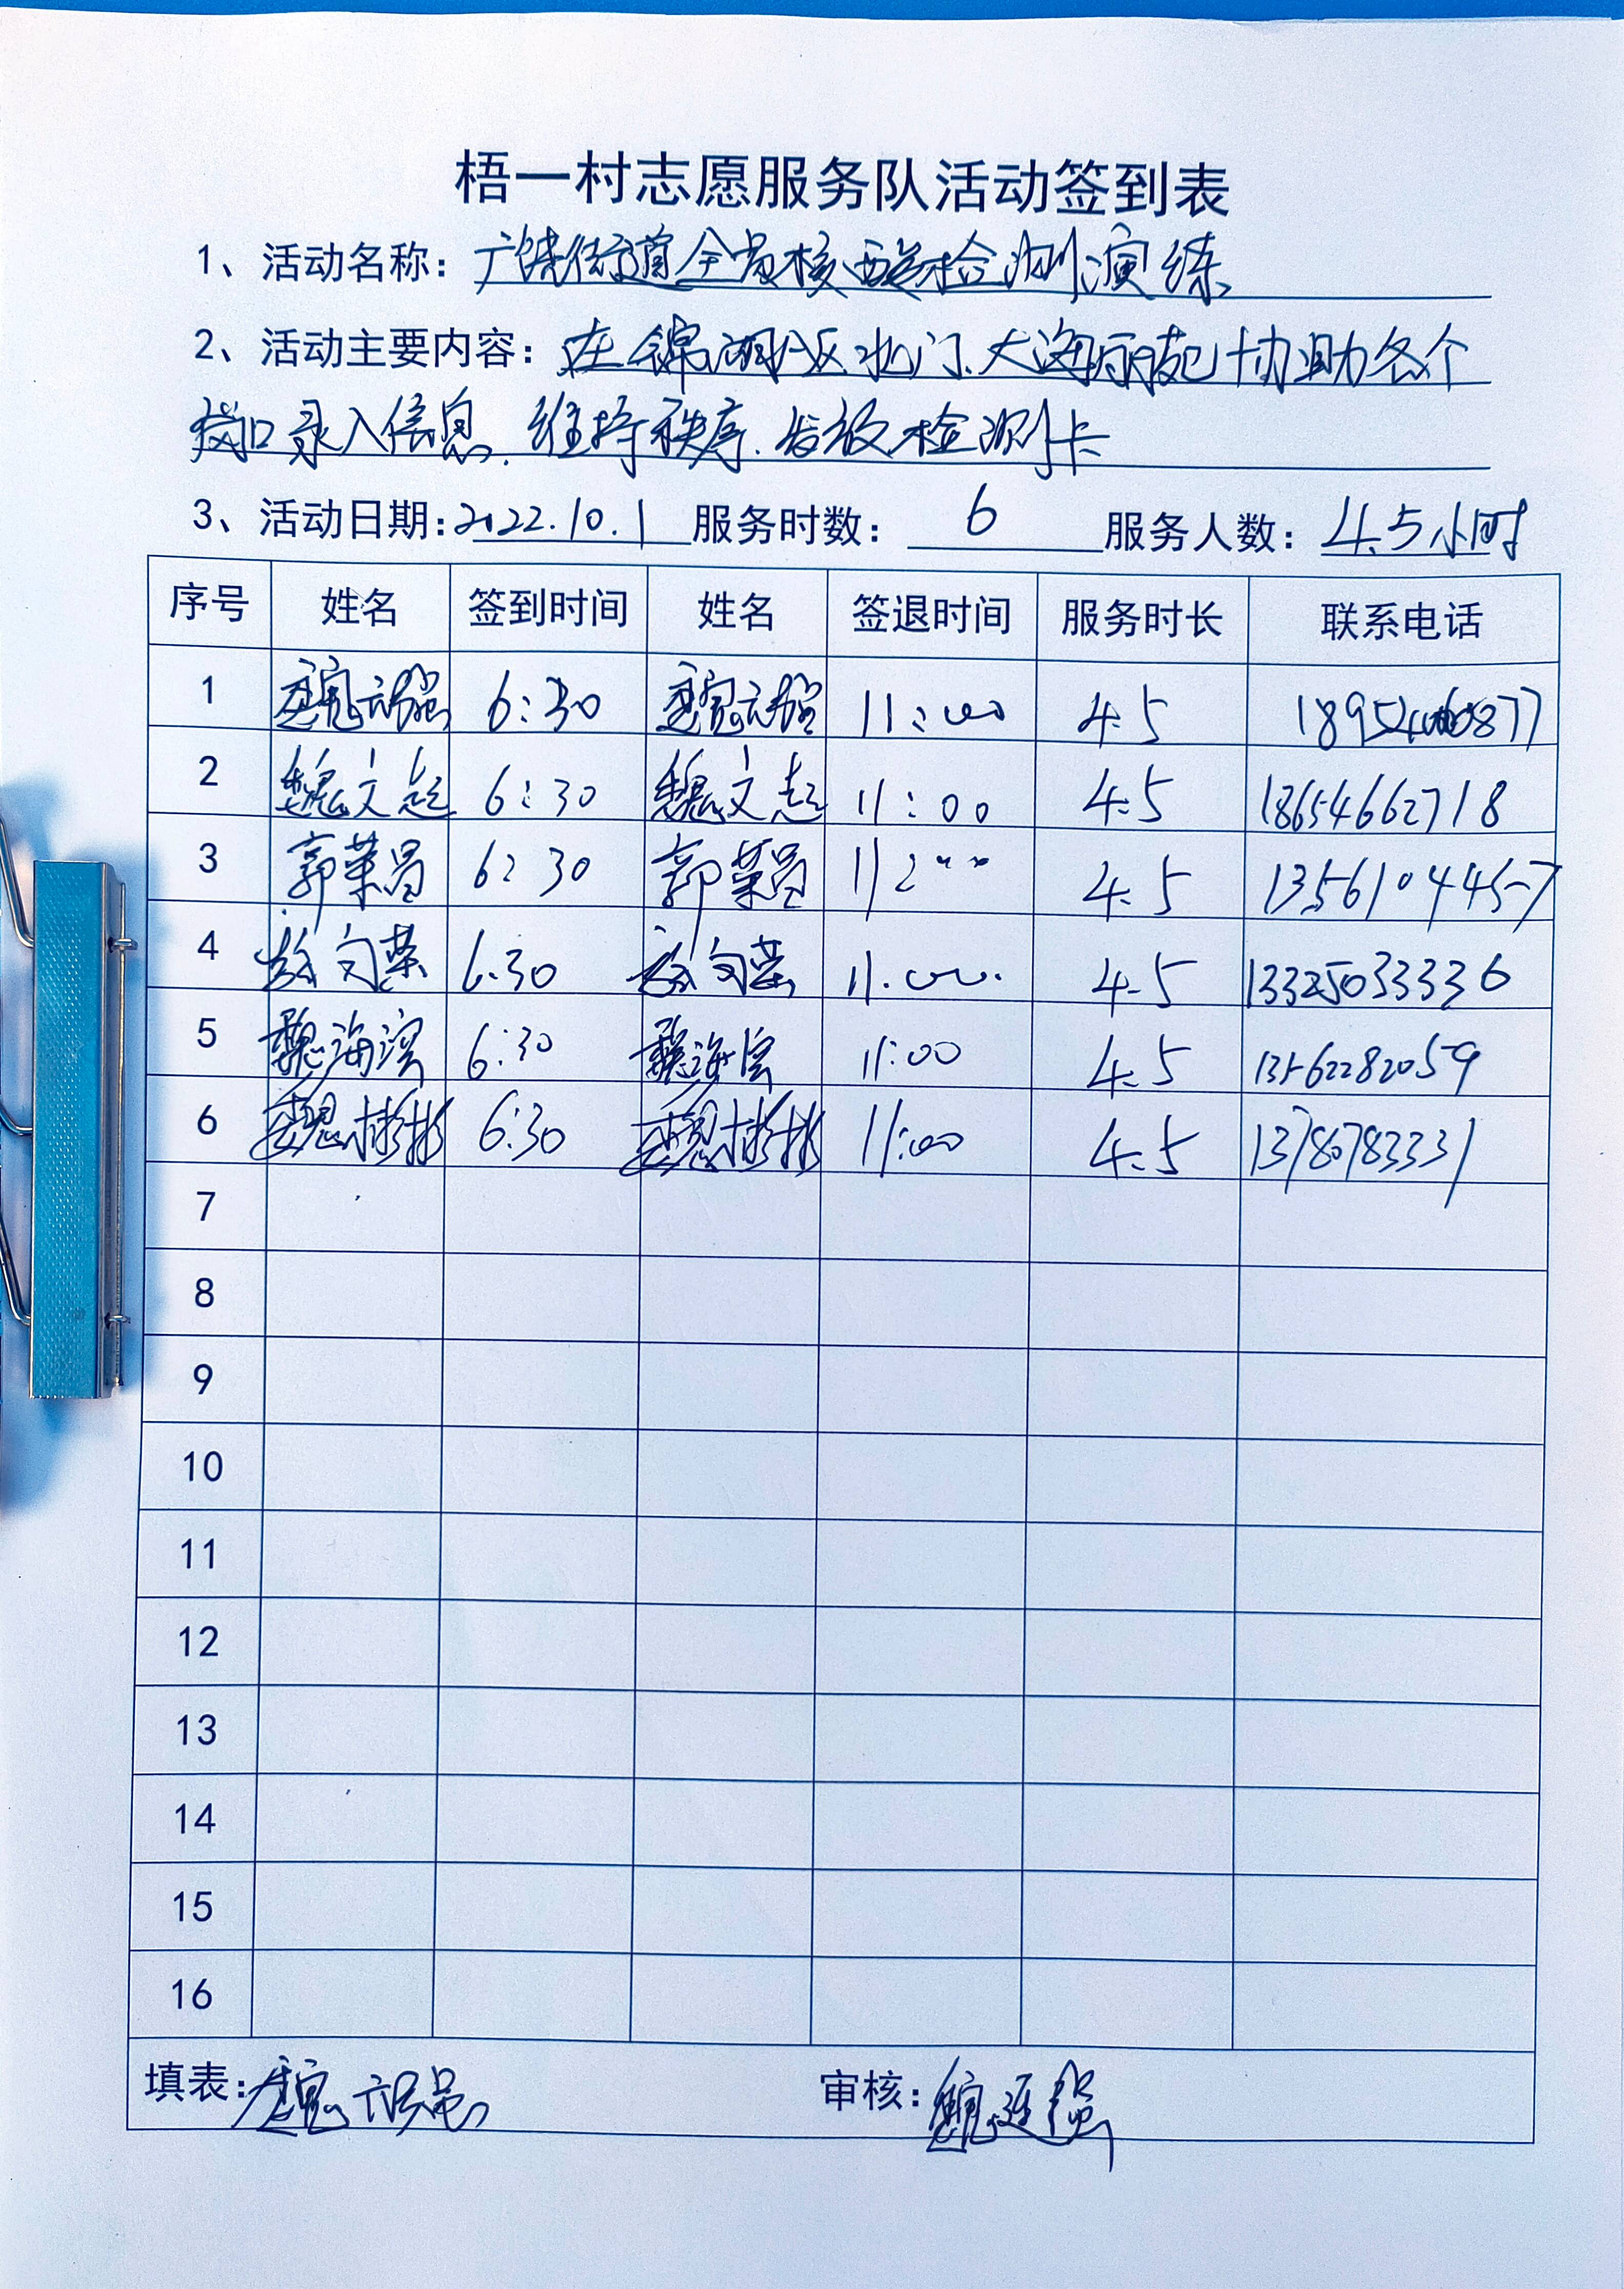 梧一村志愿服务队活动签到表
1、活动名称：广饶街道全员核酸检测演练
2、活动主要内容：在锦湖小区北门、大海丽苑协助各个
岗口录入信息、维持秩序、发放检测卡
3、活动日期：2022.10.1 服务时数：6 服务人数：4.5小时
序号 姓名 签到时间 姓名 签退时间 服务时长 联系电话
1 6:30 11:00 4.5
2 魏文起 6:30 魏文起 11:00 4.5 18654662718
3 郭荣昌 6:30 郭荣昌 11:00 4.5 13561044457
4 6:30 11:00 4.5 13325033336
5 魏海滨 6:30 魏海滨 11:00 4.5 13562282059
6 魏彬彬 6:30 魏彬彬 11:00 4.5 13780783331
7
8
9
10
11
12
13
14
15
16
填表：魏 审核：魏连